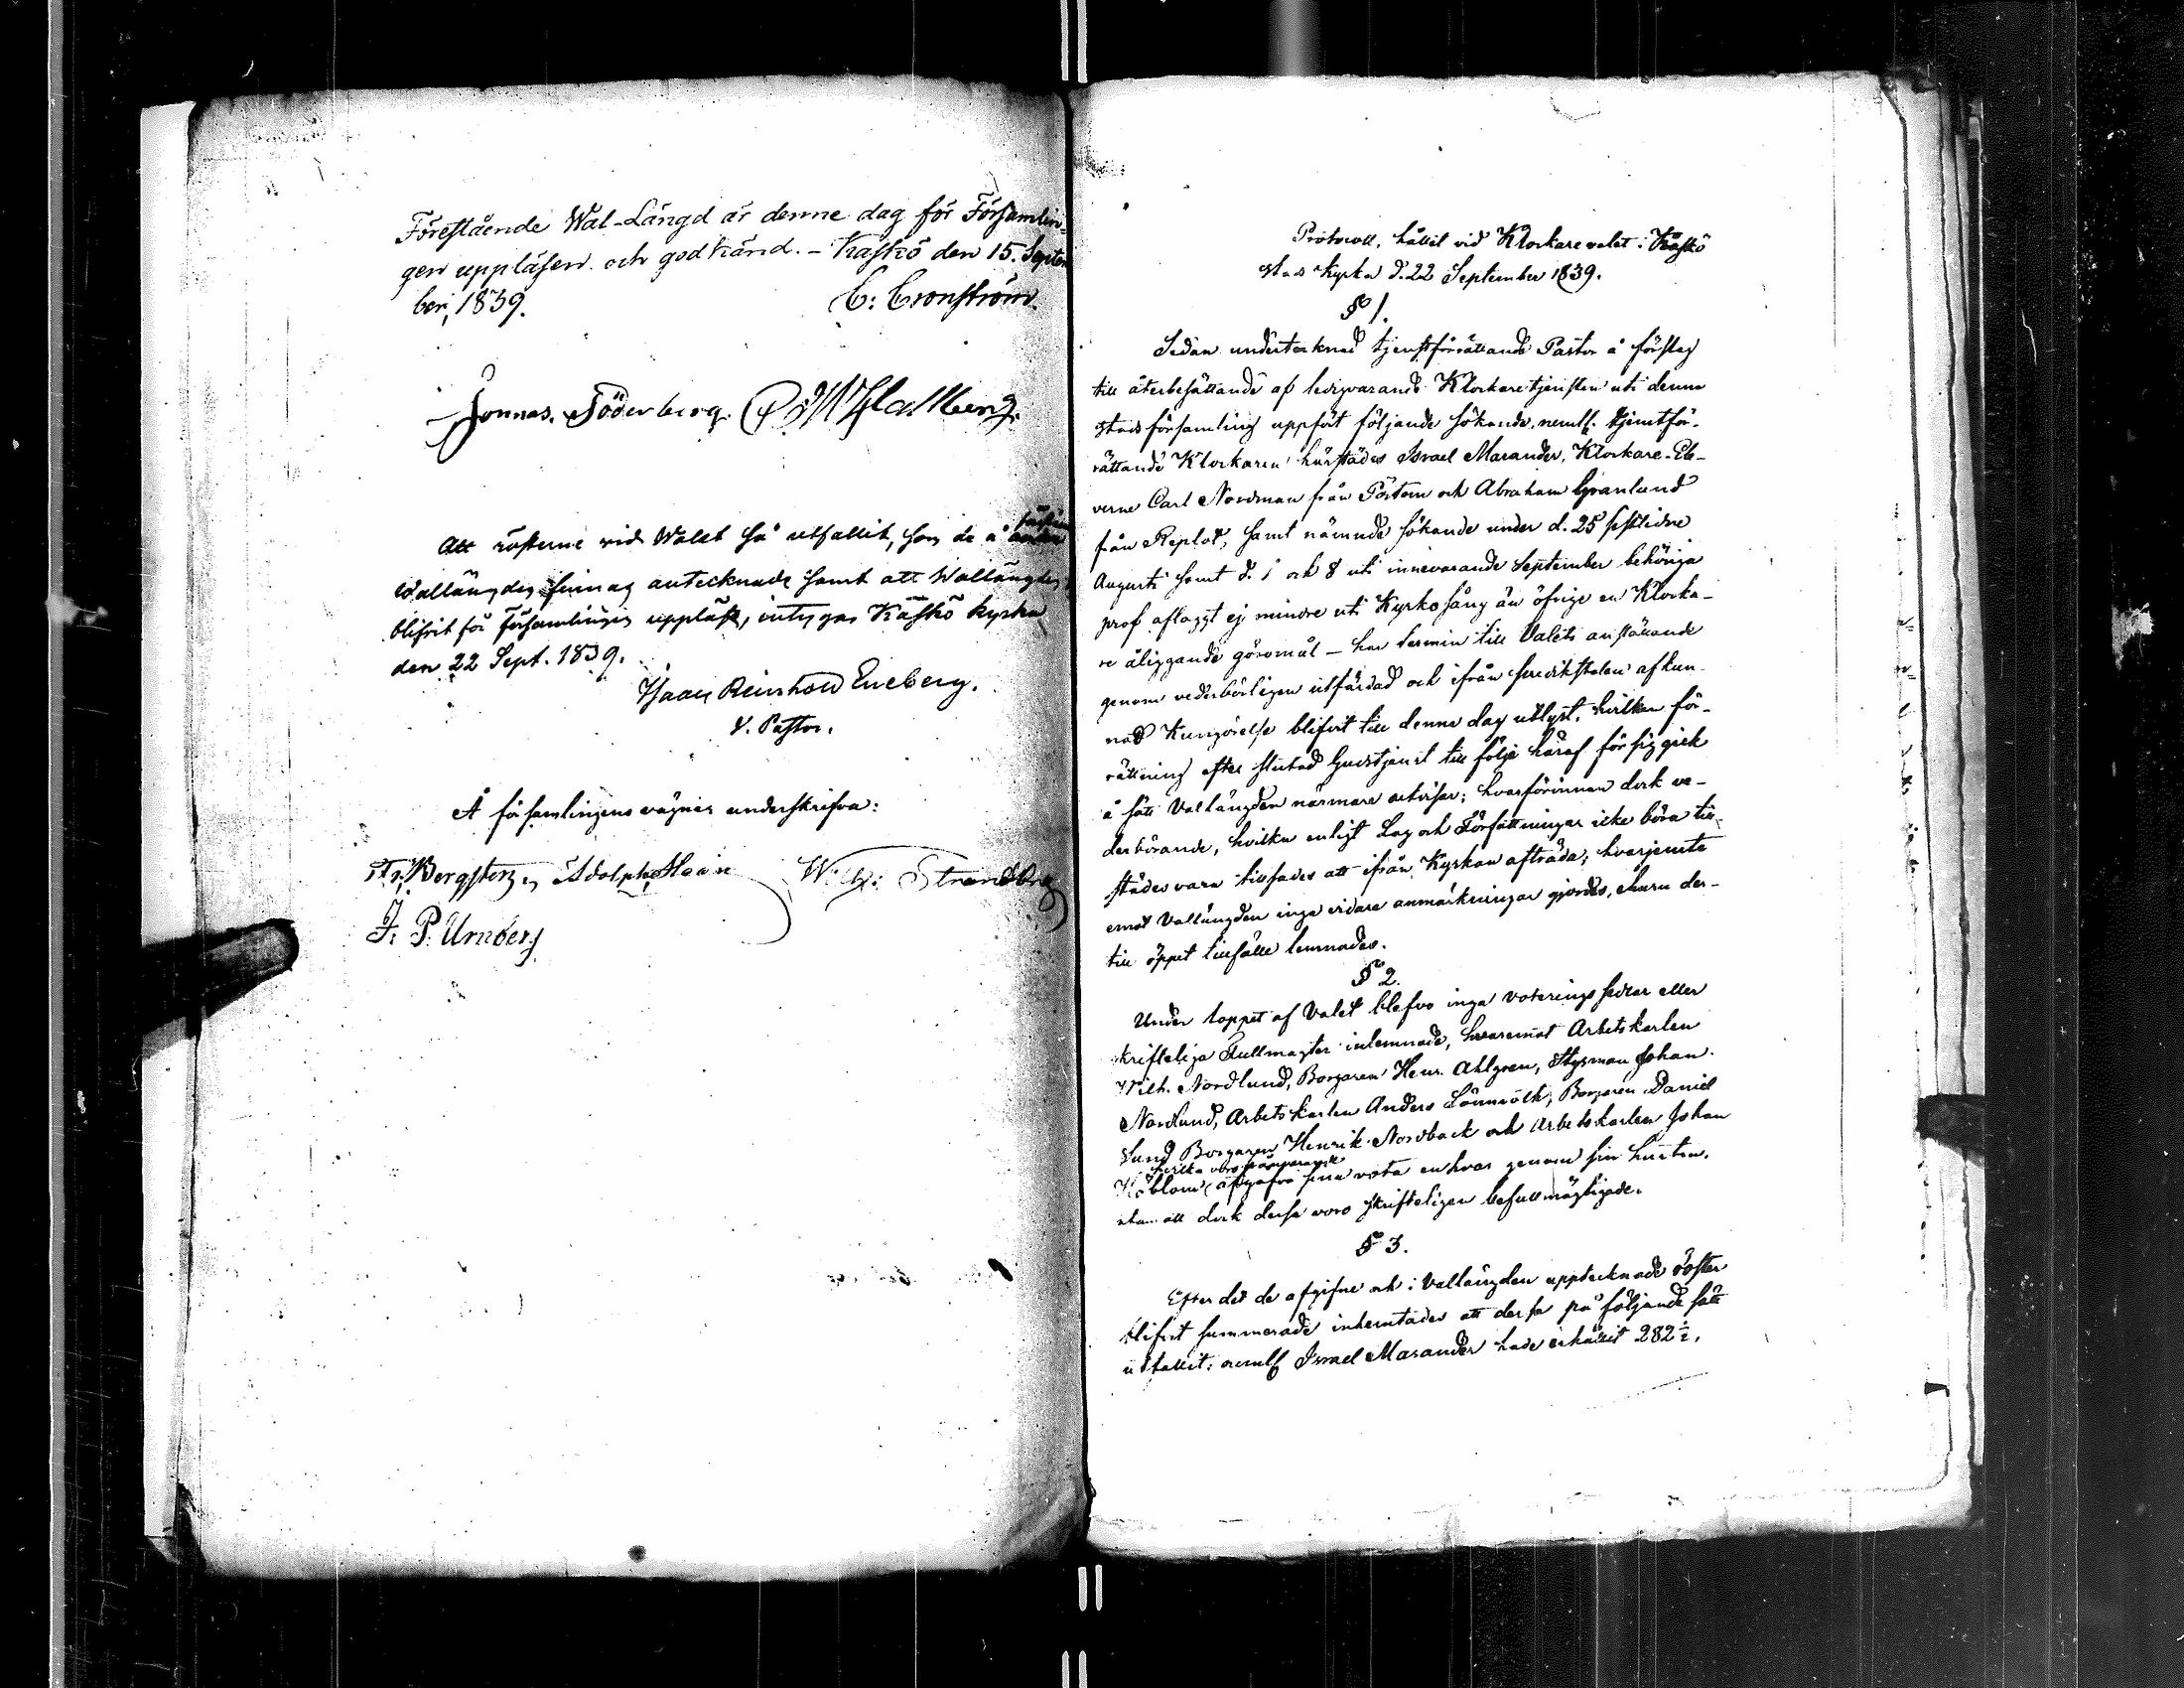 Förestående Wal-Längd är denne dag för Församlin=
gen uppläsen och godkänd. - Kaskö den 15. Septem
ber, 1839.
C: Cronström.
Jonnas. Söderberg. Hallberg.
Att rösterne vid Walet så utfallit, som de å
Wallängden finnas antecknade samt att Wallängden
blifvit för Församlingen uppläst, intygas Kaskö kyrka
den 22 Sept. 1839.
Isaac Reinhold Eneberg.
V. Pastor.
Å församlingens vägnar underskrifva:
Bergström Adolph Wilh: Strandberg
J. P. Urnberg
Protocoll, hållit vid Klockarevalet i Kaskö
stads Kyrka d. 22 September 1839.
§ 1.
Sedan undertecknad tjenstförrättande Pastor å förslag
till återbesättande af ledigvarande Klockaretjensten uti denna
stadsförsamling uppfört följande sökande, neml. tjenstför-
rättande Klockaren härstädes Israel Marander, Klockare-Ele-
verne Carl Nordman från Pörtom och Abraham Granlund
från Replot, samt nämnde sökande under d. 25 sistlidne
Augusti samt d. 1 och 8 uti innevarande September behöriga
prof aflaggt ej mindre uti Kyrkosång än öfrige en Klocka-
re åliggande göromål - har termin till Valets anställande
genom vederbörligen utfärdad och ifrån Predikstolen afkun-
nad Kungörelse blifvit till denna dag utlyst, hvilken för-
rättning efter slutad Gudstjenst till följe häraf för sig gick
å sätt Vallängden närmare utvisar; hvarförinnan dock ve-
derbörande, hvilka enligt Lag och Författningar icke böra till-
städes vara tillsades att ifrån Kyrkan afträda; hvarjemte
emot Vallängden inga vidare anmärkningar gjordes, ehuru der-
till öppet tillfälle lemnades.
§ 2.
Under loppet af Valet blefvo inga voterings sedlar eller
skrifteliga Fullmagter inlemnade, hvaremot Arbetskarlen
Wilh. Nordlund, Borgaren Henr. Ahlgren, Styrman Johan
Nordlund, Arbetskarlen Anders Lönnroth, Borgaren Daniel
Lund Borgaren Henrik Nordback och Arbetskarlen Johan
hvilka voro frånvarande
afgåfvo sina vota en hvar genom sin hustru,
utan att dock dessa voro skrifteligen befullmägtigade.
§ 3.
Efter det de afgifne och i Vallängden upptecknade röster
blifvit summerade inhemtades att dessa på följande sätt
utfallit: neml. Israel Marander hade erhållit 282 ½,